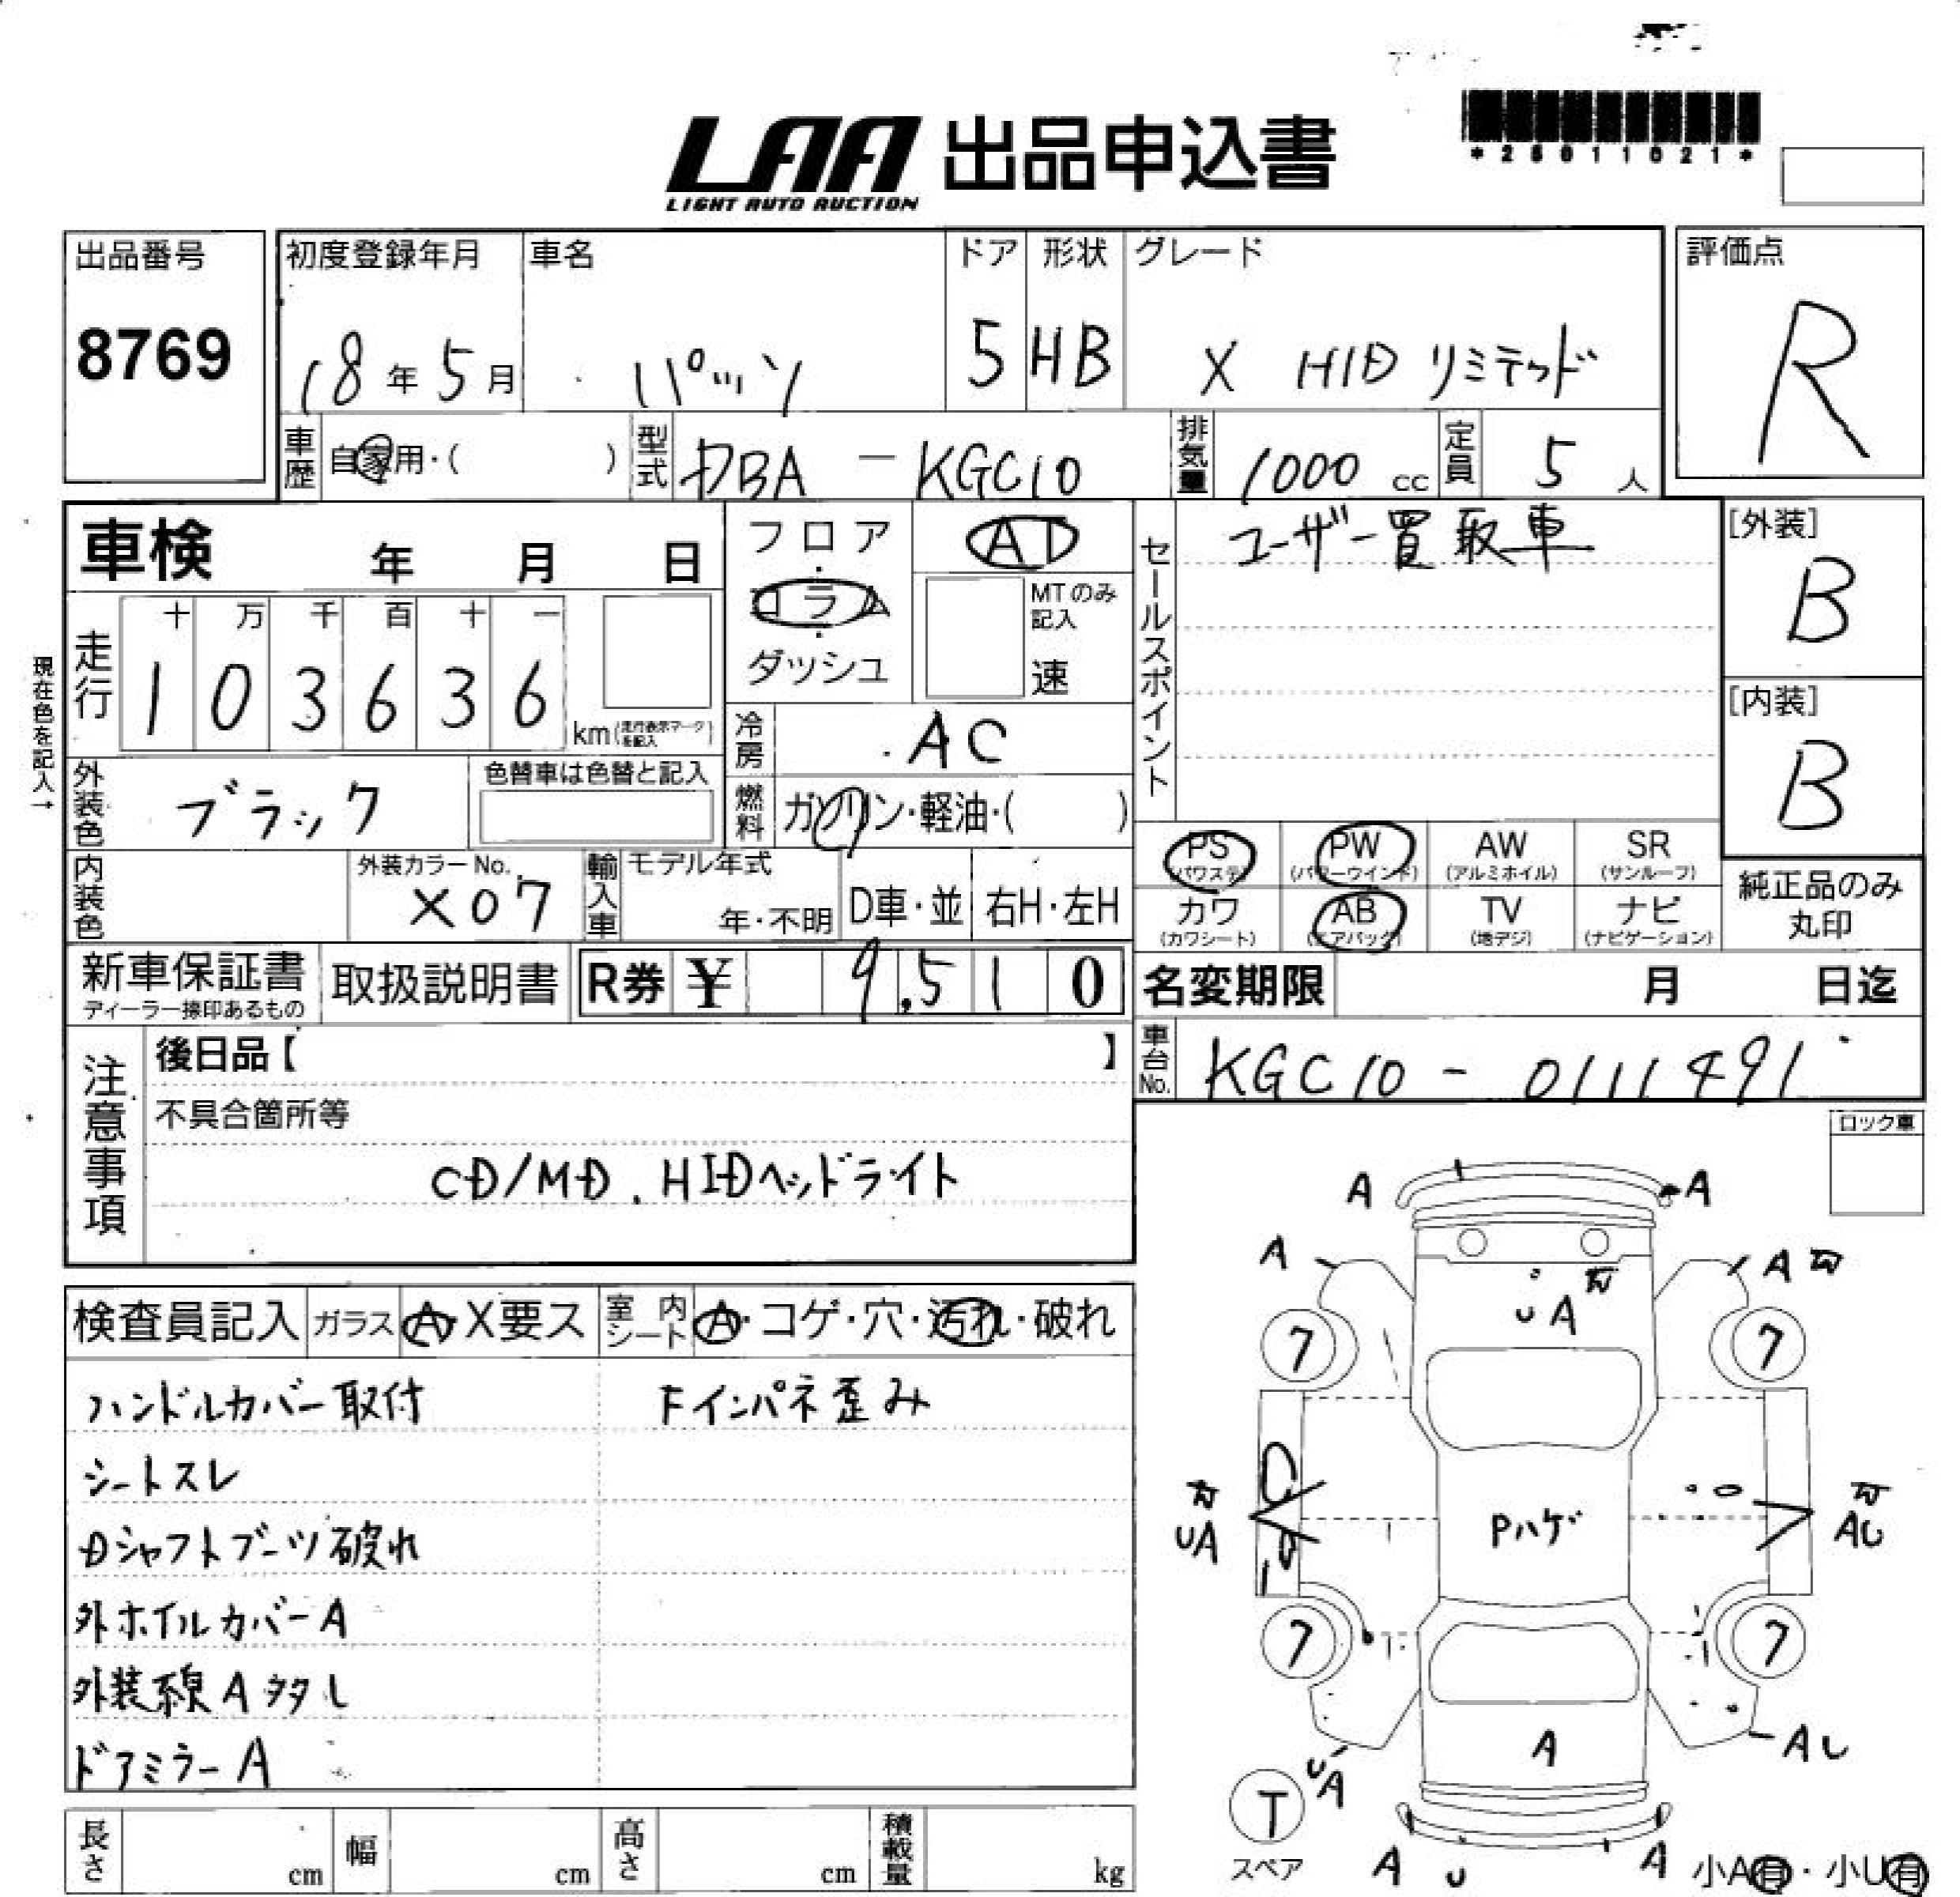 *26011021*
LAA 出品申込書
LIGHT AUTO AUCTION
出品番号
8769
初度登録年月
18年5月
車名
パッソ
ドア
5
形状
HB
グレード
X HID リミテッド
評価点
R
車歴
自家用・( )
型式
DBA - KGC10
排気量
1000 cc
定員
5 人
車検 年 月 日
フロア・コラム・ダッシュ
AT
MTのみ記入
速
セールスポイント
ユーザー買取車
[外装]
B
[内装]
B
現在色を記入→
走行
十 万 千 百 十 一
1 0 3 6 3 6
km(走行表示マークを記入)
冷房
AC
外装色
ブラック
色替車は色替と記入
燃料
ガソリン・軽油・( )
PS (パワステ)
PW (パワーウインド)
AW (アルミホイル)
SR (サンルーフ)
カワ (カワシート)
AB (エアバッグ)
TV (地デジ)
ナビ (ナビゲーション)
純正品のみ丸印
内装色
外装カラーNo.
X07
輸入車
モデル年式
年・不明
D車・並
右H・左H
新車保証書
ディーラー捺印あるもの
取扱説明書
R券 ¥ 9,510
名変期限 月 日迄
車台No.
KGC10 - 0111491
注意事項
後日品【 】
不具合箇所等
CD/MD. HIDヘッドライト
ロック車
検査員記入
ガラス A・X要ス
室内シート A・コゲ・穴・汚れ・破れ
ハンドルカバー取付
シートスレ
Dシャフトブーツ破れ
外ホイルカバーA
外装線A多タし
ドアミラーA
Fインパネ歪み
A A
A A
UA
7 7
UA
Pハゲ
AU
7 7
A
UA
AU
T
スペア
A U A
小A有・小U有
長さ cm
幅 cm
高さ cm
積載量 kg